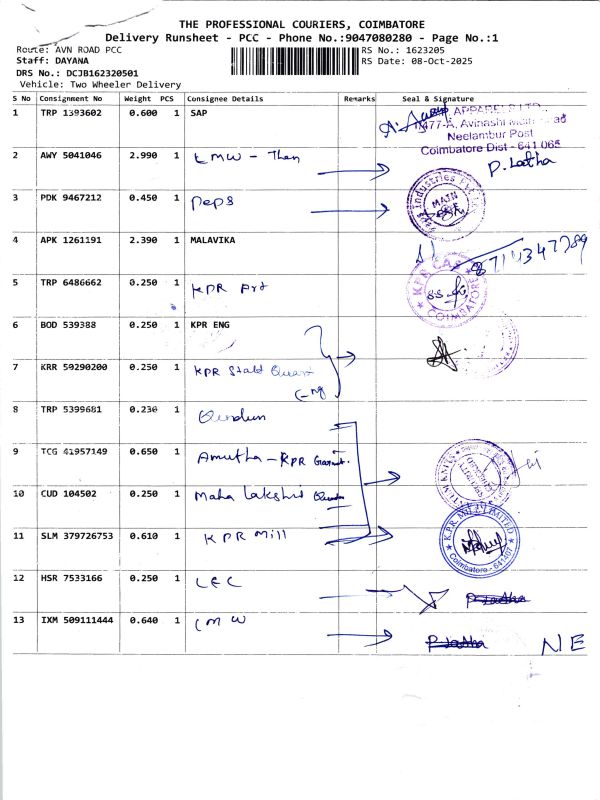 THE PROFESSIONAL COURIERS, COIMBATORE
Delivery Runsheet - PCC - Phone No.:9047080280 - Page No.:1
Route: AVN ROAD PCC RS No.: 1623205
Staff: DAYANA RS Date: 08-Oct-2025
DRS No.: DCJB162320501
Vehicle: Two Wheeler Delivery
S No Consignment No Weight PCS Consignee Details Remarks Seal & Signature
1 TRP 1393602 0.600 1 SAP
APPARELS LTD.
477-A, Avinashi
Neelambur Post
Coimbatore Dist - 641 065
2 AWY 5041046 2.990 1 LMW - Then P. Latha
3 PDK 9467212 0.450 1 Peps
Industries Pvt
MAIN
4 APK 1261191 2.390 1 MALAVIKA
5 TRP 6486662 0.250 1 KPR Art
KPR
COIMBATORE
6 BOD 539388 0.250 1 KPR ENG
7 KRR 59290200 0.250 1 KPR
8 TRP 5399681 0.230 1
9 TCG 41957149 0.650 1 Amutha - KPR
10 CUD 104502 0.250 1 Maha Lakshmi
11 SLM 379726753 0.610 1 KPR Mill
K.P.R. MILL LIMITED
Coimbatore - 641407
12 HSR 7533166 0.250 1 LEC
13 IXM 509111444 0.640 1 LMW NE